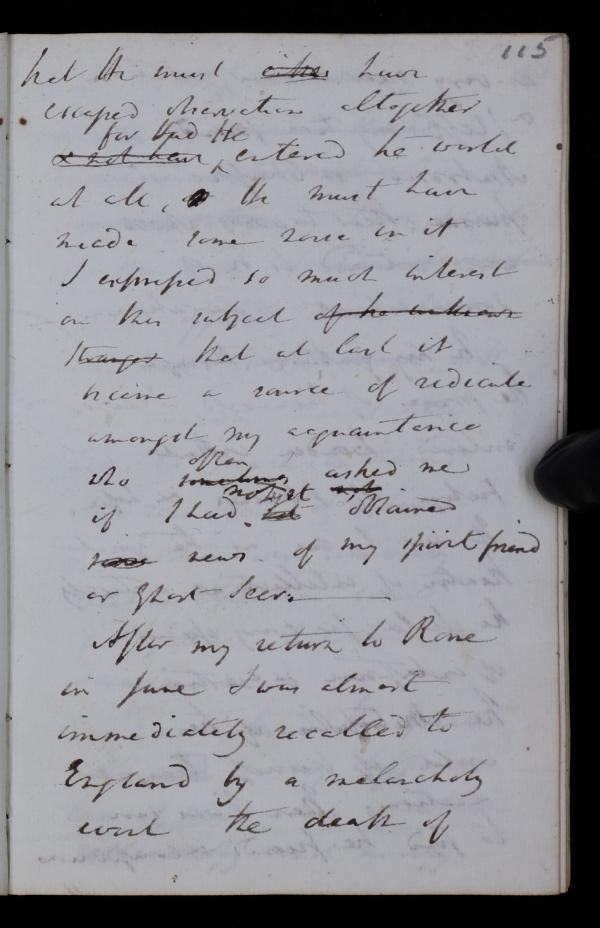 115
that He must either have
escaped observation altogether
for had He
& not have entered the world
at all, He must have
made some noise in it
I expressed so much interest
on this subject of the unknown
stranger that at last it
became a source of ridicule
amongst my acquaintance
often
who sometimes asked me
not yet
if I had not obtained
some news of my spirit friend
or Ghost Seer.
After my return to Rome
in June I was almost
immediately recalled to
England by a melancholy
event the death of